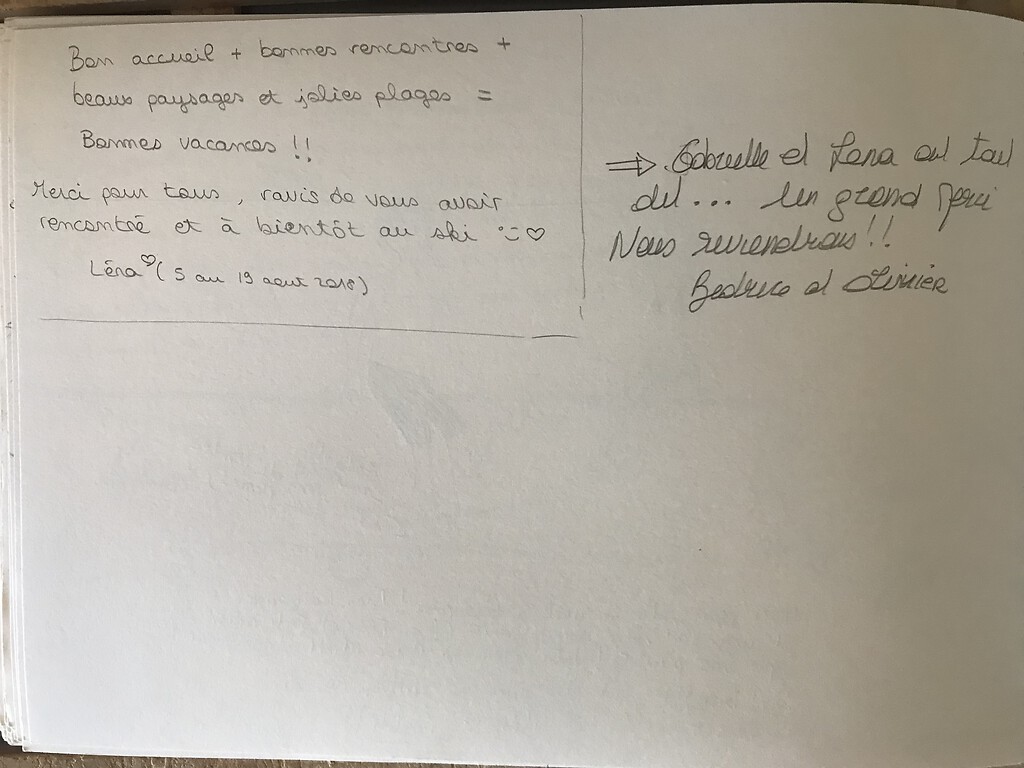 Bon accueil + bonnes rencontres +
beaux paysages et jolies plages =
Bonnes vacances !!
Merci pour tous, ravis de vous avoir
rencontré et à bientôt au ski :) ♡
Léna ♡ (5 au 19 aout 2018)
⇒ Gabrielle et Lena ont tout
dit... Un grand Merci
Nous reviendrons !!
et Olivier